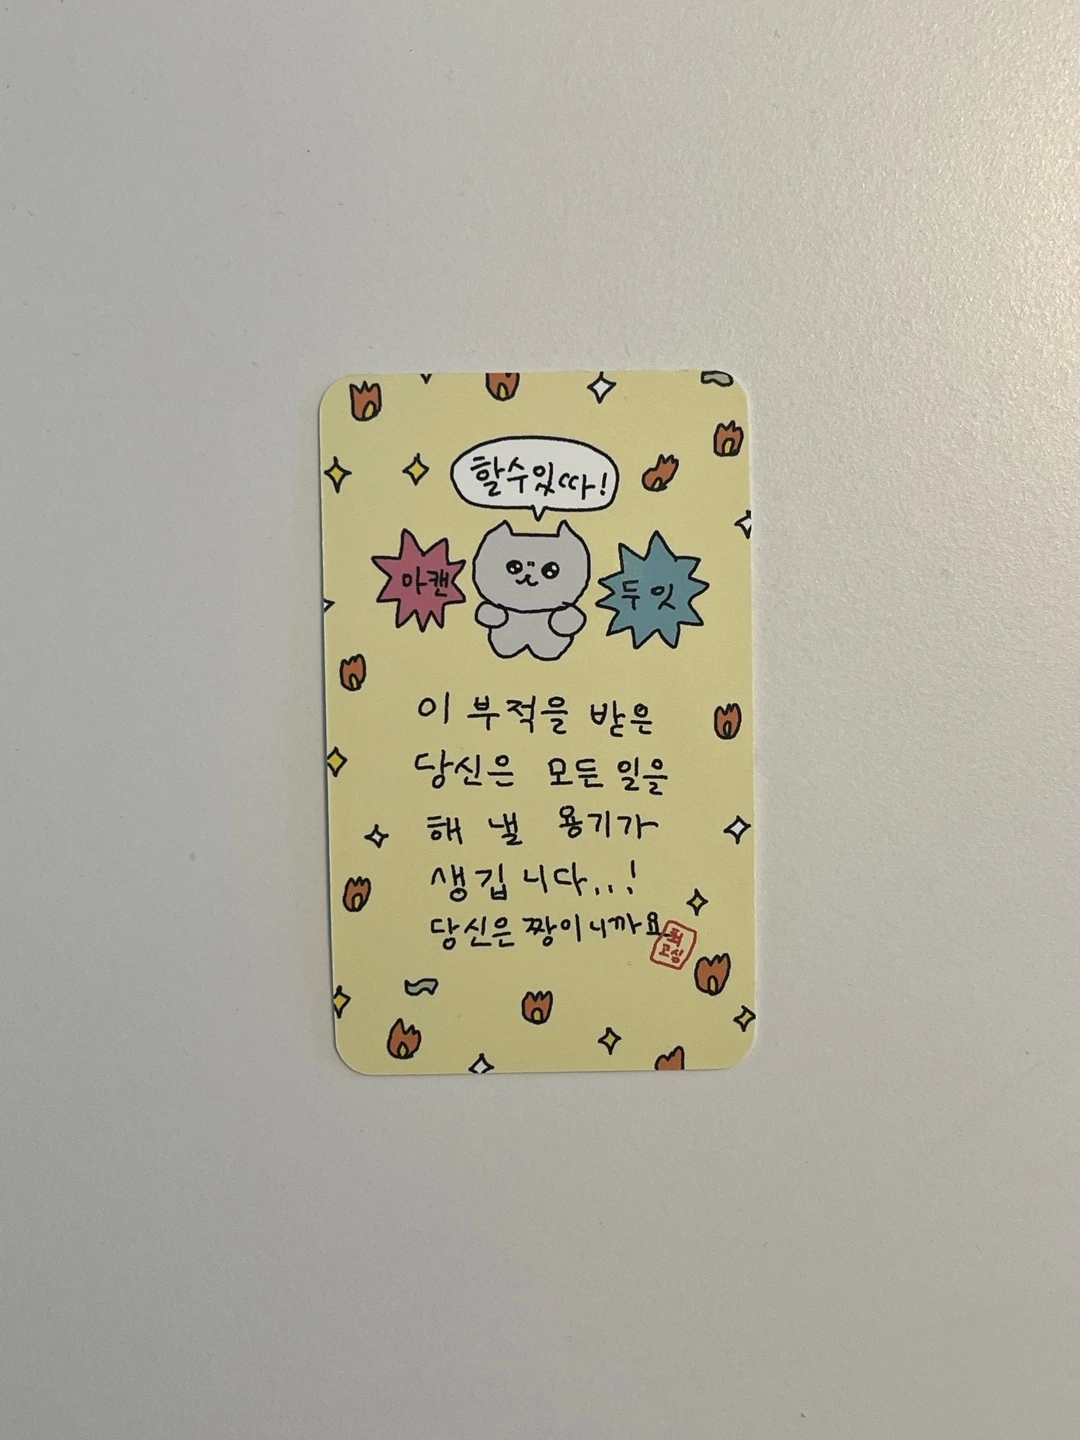 할수있따!
아캔
두잇
이 부적을 받은
당신은 모든 일을
해 낼 용기가
생깁니다...!
당신은 짱이니까요
최
고심